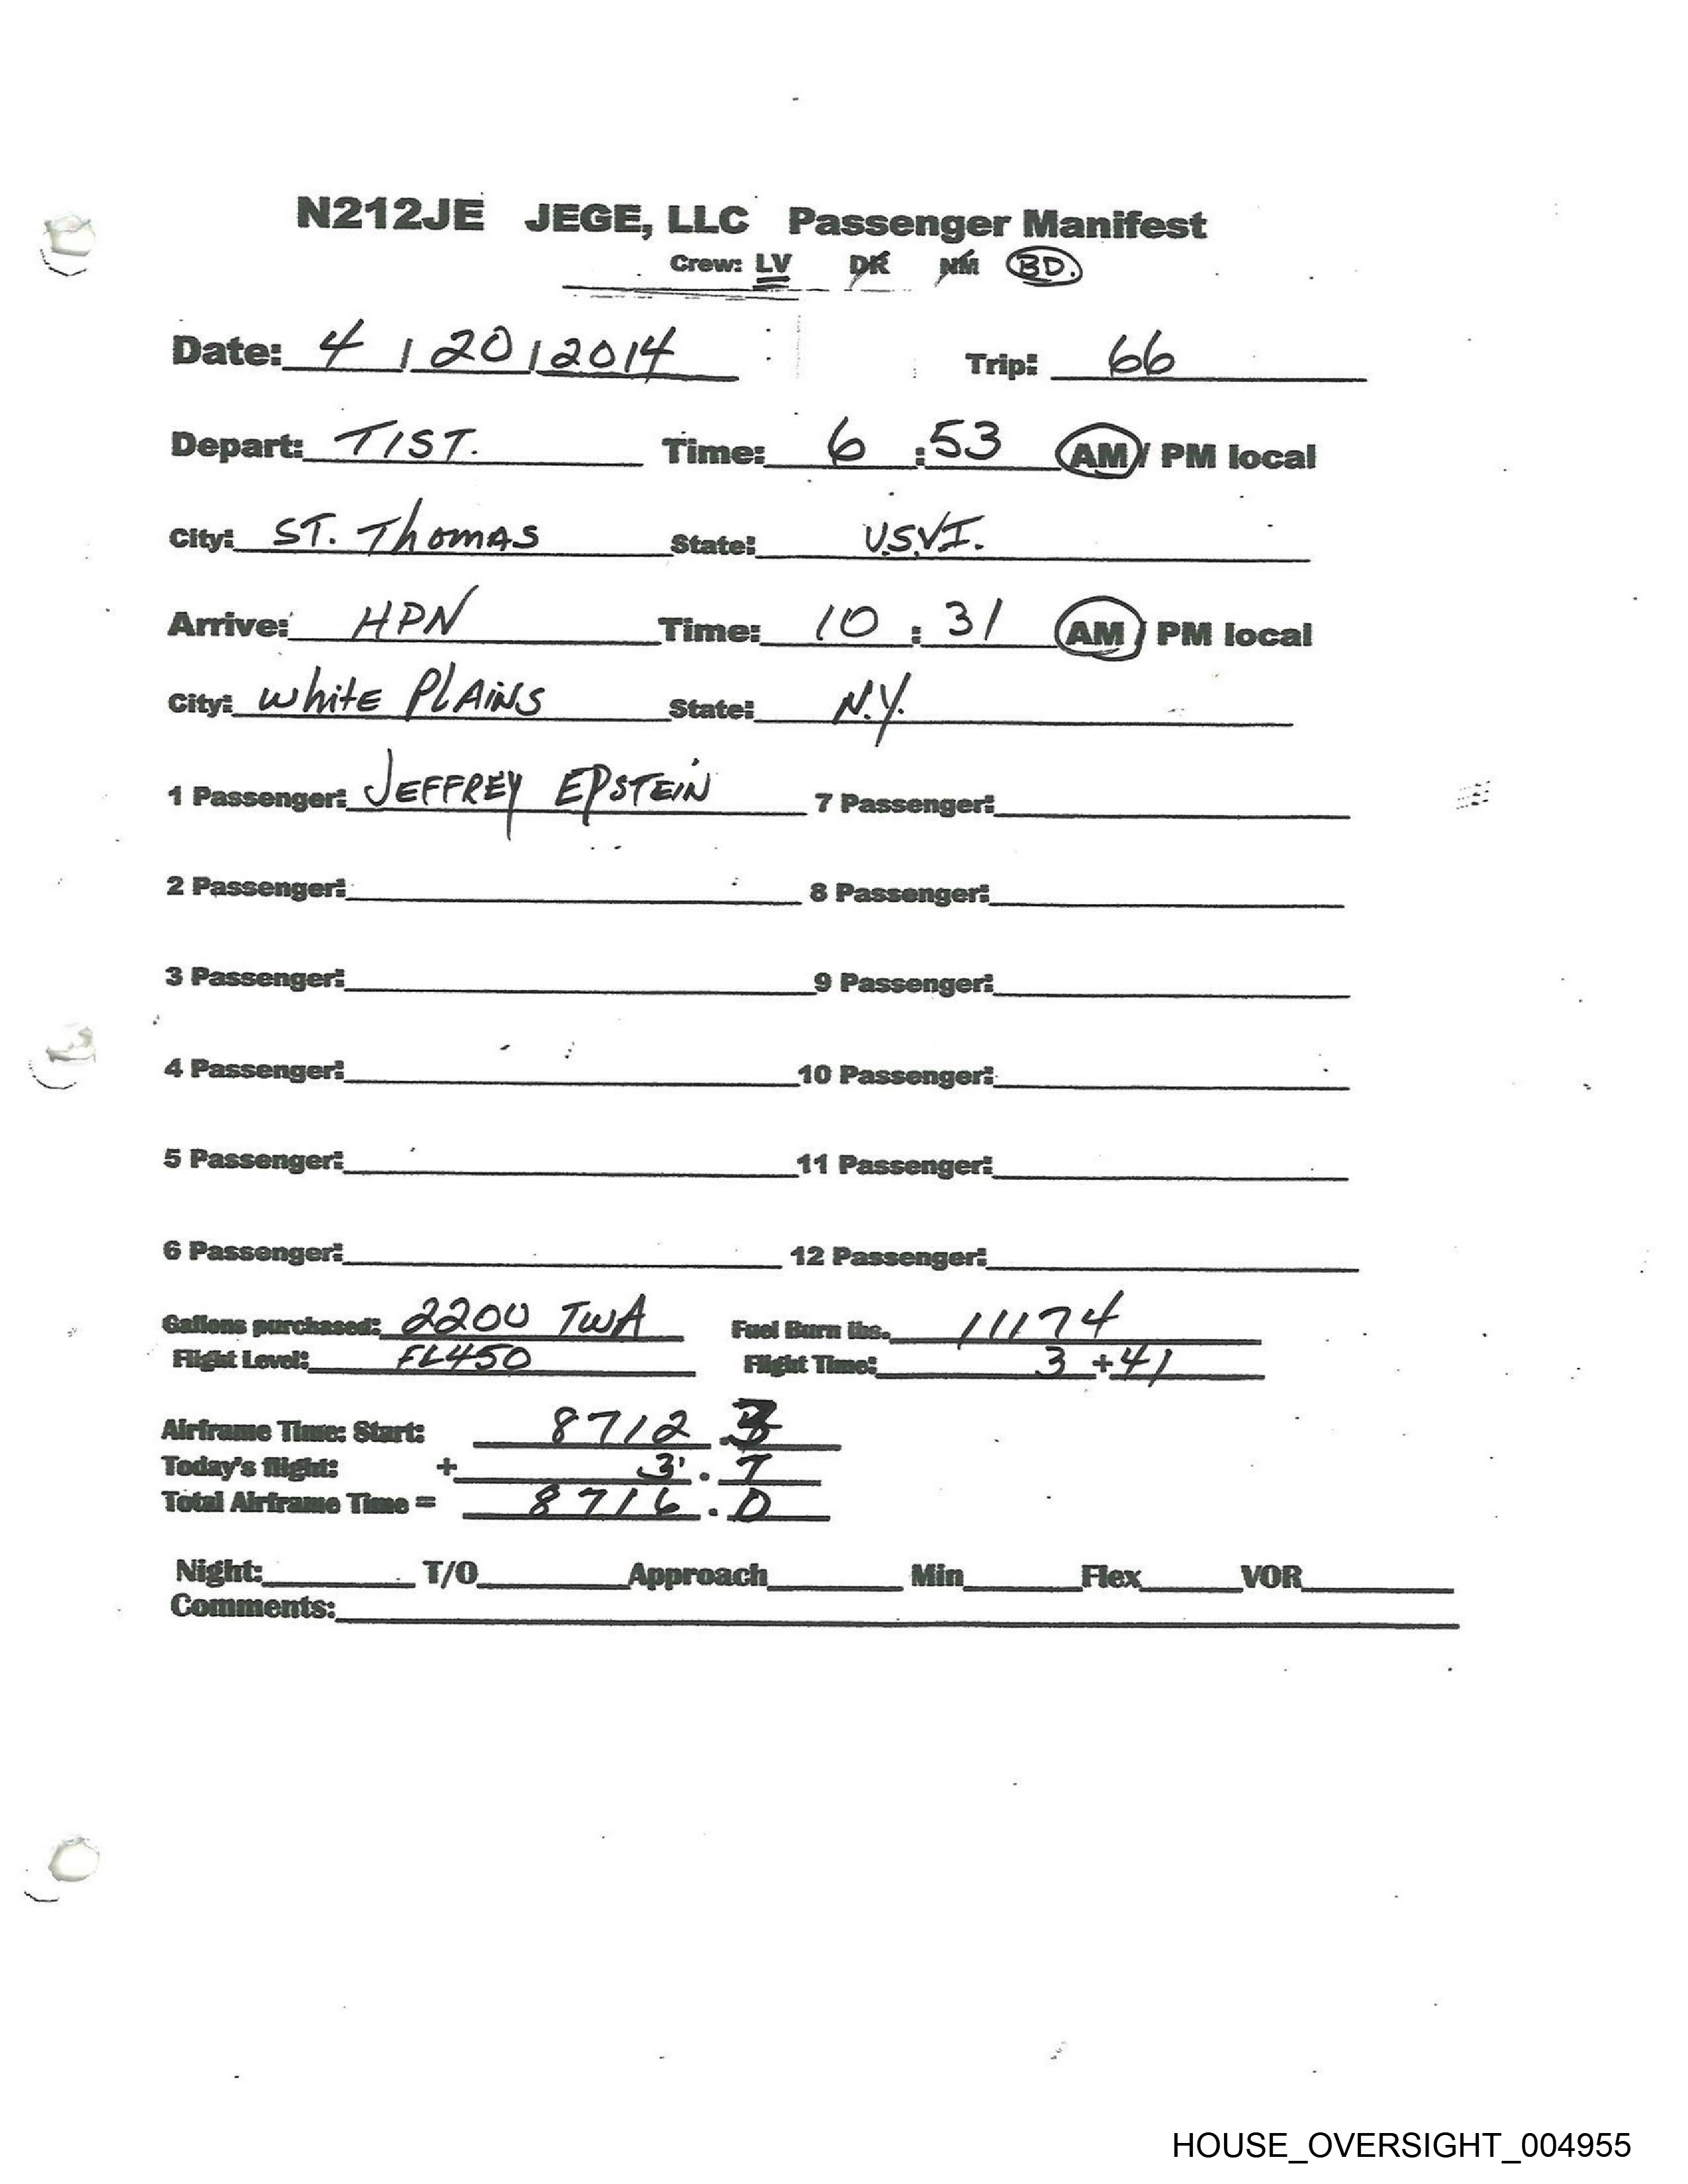 N212JE JEGE, LLC Passenger Manifest
Crew: LV DR NM BD.
Date: 4 / 20 / 2014 Trip: 66
Depart: TIST. Time: 6 : 53 AM / PM local
City: ST. Thomas State: U.S.V.I.
Arrive: HPN Time: 10 : 31 AM / PM local
City: White PLAiNS State: N.Y.
1 Passenger: JEFFREY EPSTEIN 7 Passenger:
2 Passenger: 8 Passenger:
3 Passenger: 9 Passenger:
4 Passenger: 10 Passenger:
5 Passenger: 11 Passenger:
6 Passenger: 12 Passenger:
Gallons purchased: 2200 TWA Fuel Burn lbs. 11174
Flight Level: FL450 Flight Time: 3 + 41
Airframe Time: Start: 8712 .
Today's flight: + 3 . 7
Total Airframe Time = 8716 . 0
Night: T/O Approach Min Flex VOR
Comments:
HOUSE_OVERSIGHT_004955